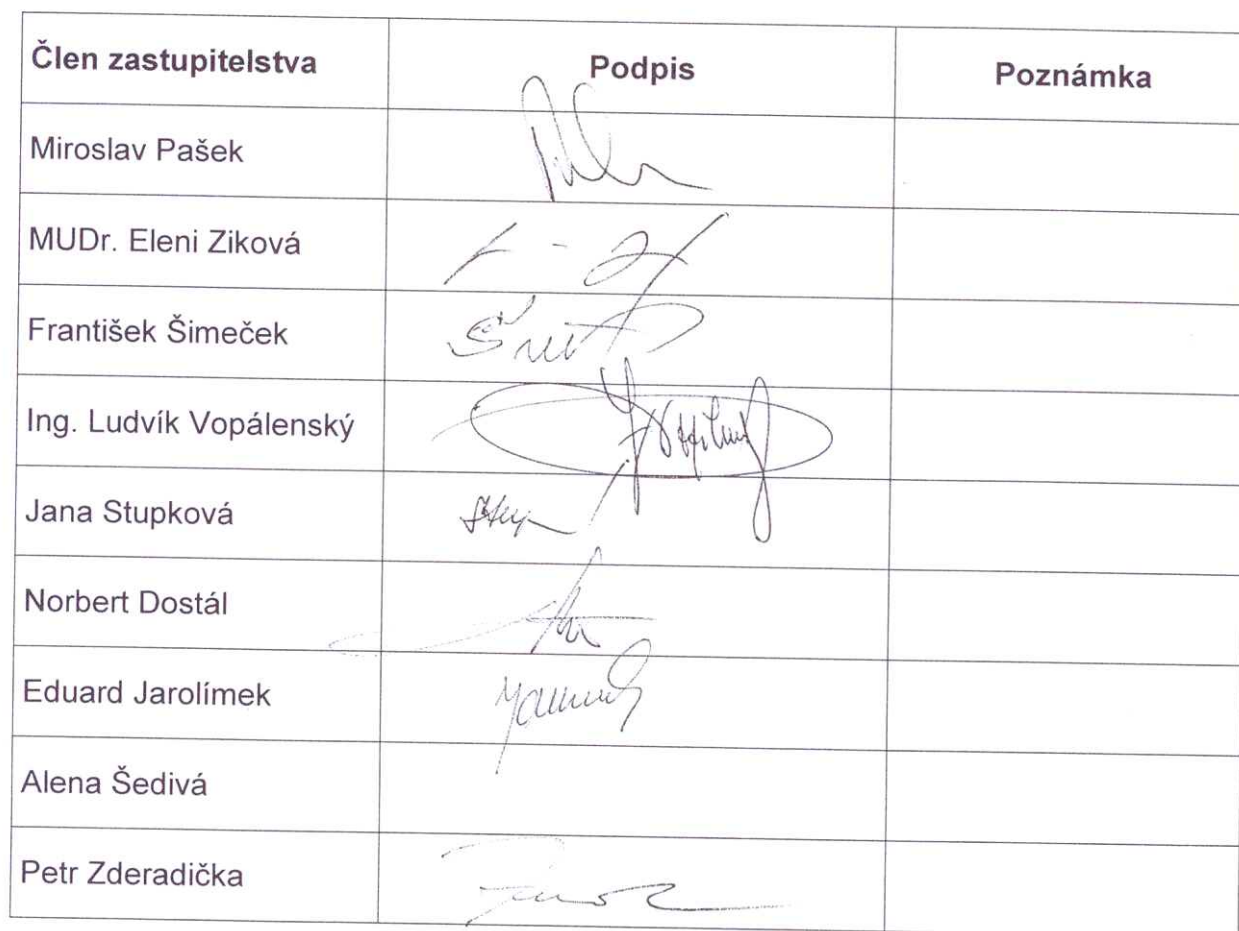 Člen zastupitelstva Podpis Poznámka
Miroslav Pašek
MUDr. Eleni Ziková
František Šimeček
Ing. Ludvík Vopálenský
Jana Stupková
Norbert Dostál
Eduard Jarolímek
Alena Šedivá
Petr Zderadička